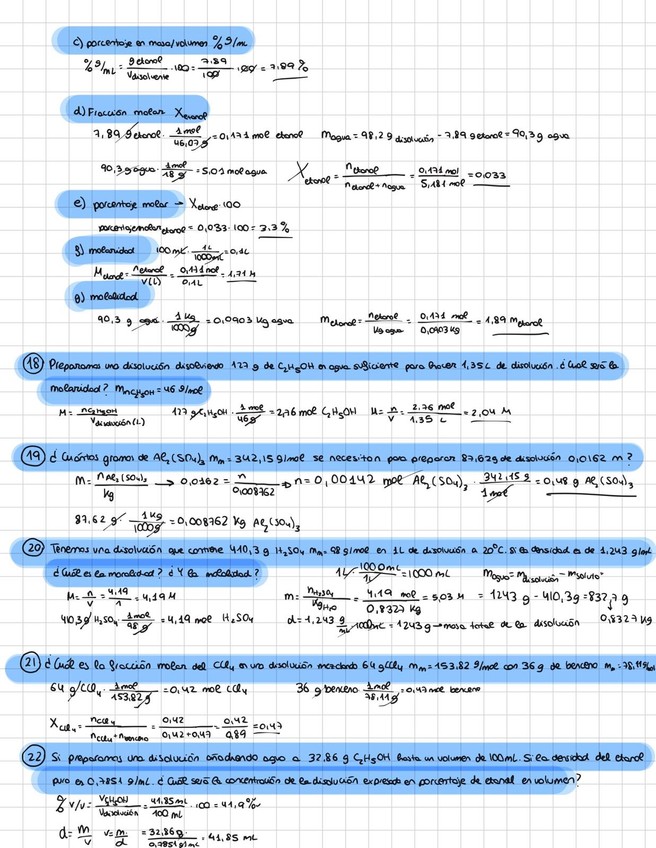 c) porcentaje en masa/volumen % g/mL
% g/mL = g etanol / V disolvente · 100 = 7,89 / 100 · 100 = 7,89 %
d) Fracción molar X etanol
7,89 g etanol · 1 mol / 46,07 g = 0,171 mol etanol m agua = 98,2 g disolución - 7,89 g etanol = 90,3 g agua
90,3 g agua · 1 mol / 18 g = 5,01 mol agua X etanol = n etanol / n etanol + n agua = 0,171 mol / 5,181 mol = 0,033
e) porcentaje molar → X etanol · 100
porcentaje molar etanol = 0,033 · 100 = 3,3 %
f) molaridad 100 mL · 1 L / 1000 mL = 0,1 L
M etanol = n etanol / V(L) = 0,171 mol / 0,1 L = 1,71 M
g) molalidad
90,3 g agua · 1 Kg / 1000 g = 0,0903 Kg agua m etanol = n etanol / Kg agua = 0,171 mol / 0,0903 Kg = 1,89 m etanol
18 Preparamos una disolución disolviendo 127 g de C2H5OH en agua suficiente para hacer 1,35 L de disolución. ¿Cuál será la
molaridad? Mm C2H5OH = 46 g/mol
M = n C2H5OH / V disolución (L) 127 g C2H5OH · 1 mol / 46 g = 2,76 mol C2H5OH M = n / V = 2,76 mol / 1,35 L = 2,04 M
19 ¿Cuántos gramos de Al2(SO4)3 Mm = 342,15 g/mol se necesitan para preparar 87,62 g de disolución 0,0162 m?
m = n Al2(SO4)3 / Kg → 0,0162 = n / 0,008762 ⇒ n = 0,00142 mol Al2(SO4)3 · 342,15 g / 1 mol = 0,48 g Al2(SO4)3
87,62 g · 1 Kg / 1000 g = 0,008762 Kg Al2(SO4)3
20 Tenemos una disolución que contiene 410,3 g H2SO4 Mm = 98 g/mol en 1 L de disolución a 20°C. Si la densidad es de 1,243 g/mL
¿Cuál es la molaridad? ¿Y la molalidad? 1 L · 1000 mL / 1 L = 1000 mL m agua = m disolución - m soluto =
M = n / V = 4,19 / 1 = 4,19 M m = n H2SO4 / Kg H2O = 4,19 mol / 0,8327 Kg = 5,03 m = 1243 g - 410,3 g = 832,7 g
410,3 g H2SO4 · 1 mol / 98 g = 4,19 mol H2SO4 d = 1,243 g / mL · 1000 mL = 1243 g → masa total de la disolución 0,8327 Kg
21 ¿Cuál es la fracción molar del CCl4 en una disolución mezclando 64 g CCl4 Mm = 153,82 g/mol con 36 g de benceno Mm = 78,11 g/mol
64 g CCl4 · 1 mol / 153,82 g = 0,42 mol CCl4 36 g benceno · 1 mol / 78,11 g = 0,47 mol benceno
X CCl4 = n CCl4 / n CCl4 + n benceno = 0,42 / 0,42 + 0,47 = 0,42 / 0,89 = 0,47
22 Si preparamos una disolución añadiendo agua a 32,86 g C2H5OH hasta un volumen de 100 mL. Si la densidad del etanol
puro es 0,7851 g/mL. ¿Cuál será la concentración de la disolución expresada en porcentaje de etanol en volumen?
% v/v = V C2H5OH / V disolución = 41,85 mL / 100 mL · 100 = 41,9 %
d = m / v v = m / d = 32,86 g / 0,7851 g/mL = 41,85 mL